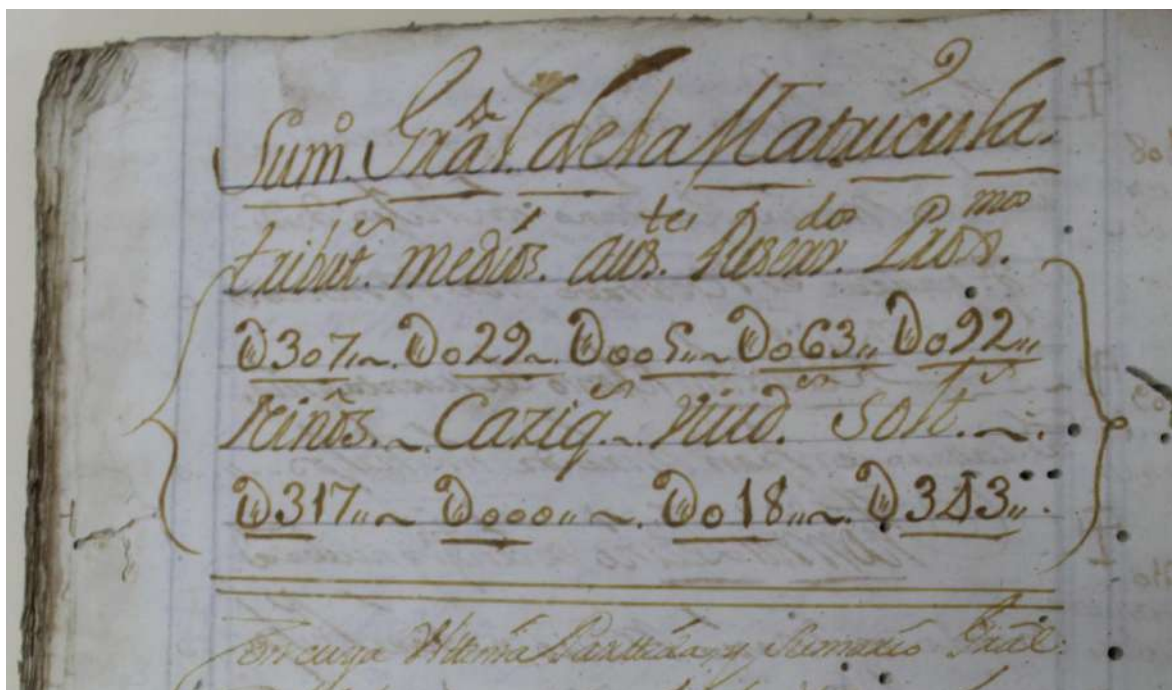 Sum.º Grãl. de la Matricula.
tribut.s medios. aus.tes Reserv.dos Prox.mos
U307,,~. U029~. U005,,~ U063,, U092,,,
Niños.~ Caziq.s~. Viud.s Solt.s~.
U317,,~ U000,,~. U018,,~. U343,,.
En cuya Ultima Partida, y Sumario Gral: